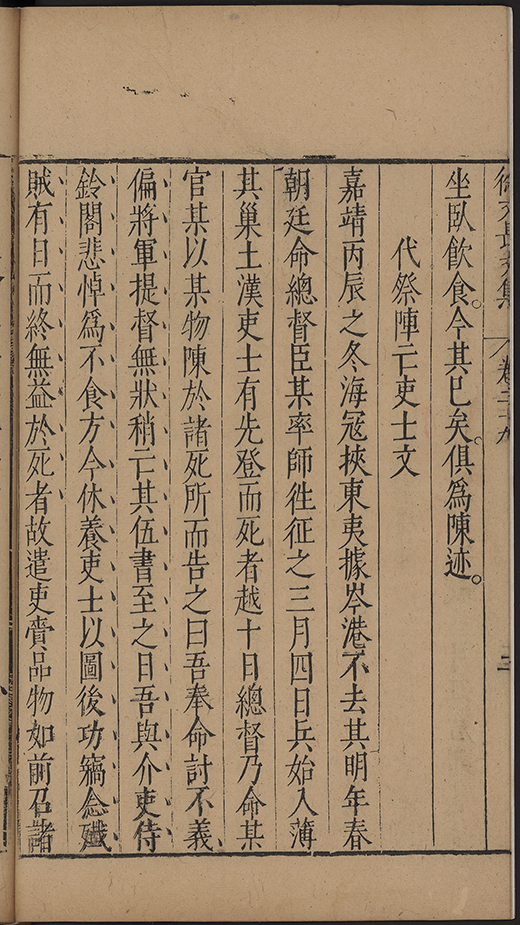 徐文長文集 卷二十九 三
坐臥飲食。今其已矣。俱爲陳迹。
代祭陣亡吏士文
嘉靖丙辰之冬海冦挾東夷據岑港不去其明年春
朝廷命總督臣某率師徃征之三月四日兵始入薄
其巢土漢吏士有先登而死者越十日總督乃命某
官某以某物陳於諸死所而告之曰吾奉命討不義
偏將軍提督無狀稍亡其伍書至之日吾與介吏侍
鈴閣悲悼爲不食方今休養吏士以圖後功縞念殲
賊有日而終無益於死者故遣吏賫品物如前召諸